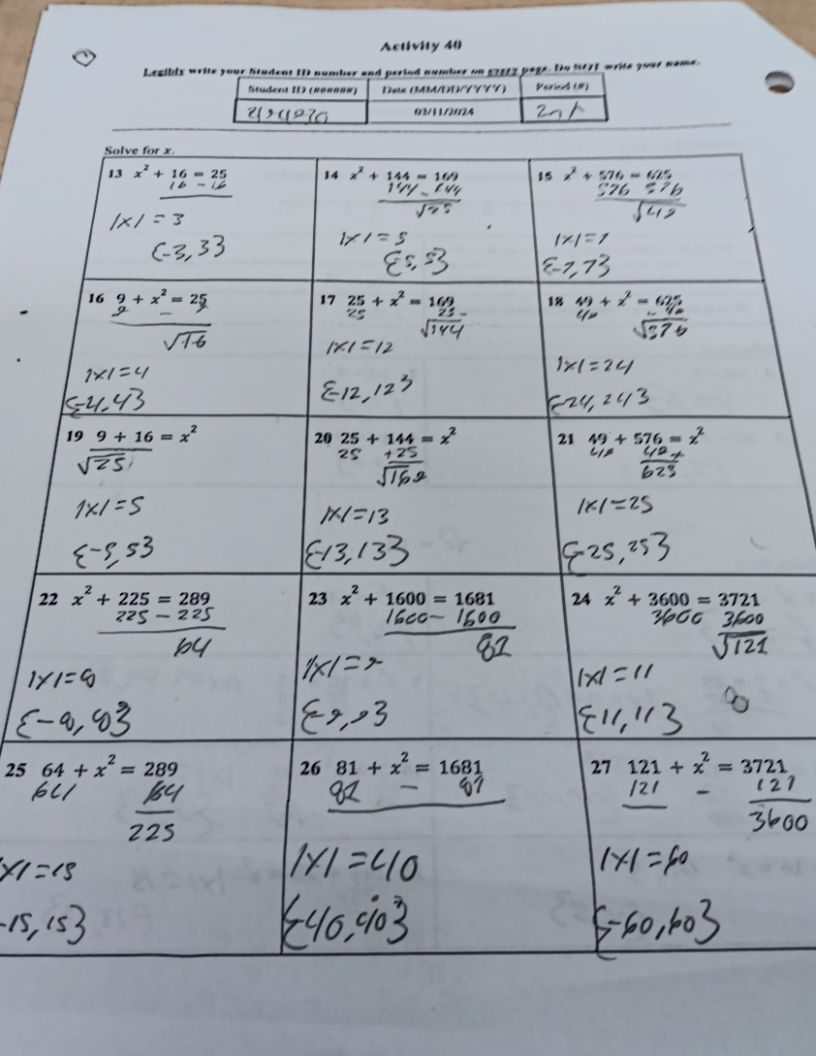 Activity 40
Legibly write your Student ID number and period number on every page. Do NOT write your name.
Student ID (######) Date (MM/DD/YYYY) Period (#)
03/11/2024
Solve for x.
13 x² + 16 = 25
16 - 16
|x| = 3
{-3, 3}
14 x² + 144 = 169
144 - 144
√25
|x| = 5
{5, 5}
15 x² + 576 = 625
576 576
√49
|x| = 7
{-7, 7}
16 9 + x² = 25
9 - 9
√16
|x| = 4
{-4, 4}
17 25 + x² = 169
25 25 -
√144
|x| = 12
{-12, 12}
18 49 + x² = 625
49 - 49
√576
|x| = 24
{-24, 24}
19 9 + 16 = x²
√25
|x| = 5
{-5, 5}
20 25 + 144 = x²
25 +25
√169
|x| = 13
{-13, 13}
21 49 + 576 = x²
49 49 +
625
|x| = 25
{-25, 25}
22 x² + 225 = 289
225 - 225
64
|x| = 8
{-8, 8}
23 x² + 1600 = 1681
1600 - 1600
81
|x| = 9
{-9, 9}
24 x² + 3600 = 3721
3600 3600
√121
|x| = 11
{11, 11}
25 64 + x² = 289
64 64
225
|x| = 15
-15, 15}
26 81 + x² = 1681
81 - 81
|x| = 40
{-40, 40}
27 121 + x² = 3721
121 - 121
3600
|x| = 60
{-60, 60}